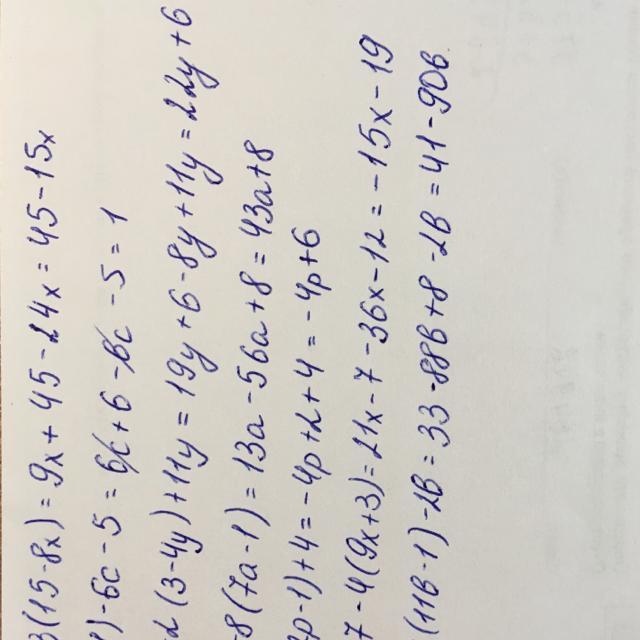 3(15-8x)=9x+45-24x=45-15x
)-6c-5=6c+6-6c-5=1
2(3-4y)+11y=19y+6-8y+11y=22y+6
-8(7a-1)=13a-56a+8=43a+8
p-1)+4=-4p+2+4=-4p+6
7-4(9x+3)=21x-7-36x-12=-15x-19
(11b-1)-2b=33-88b+8-2b=41-90b.